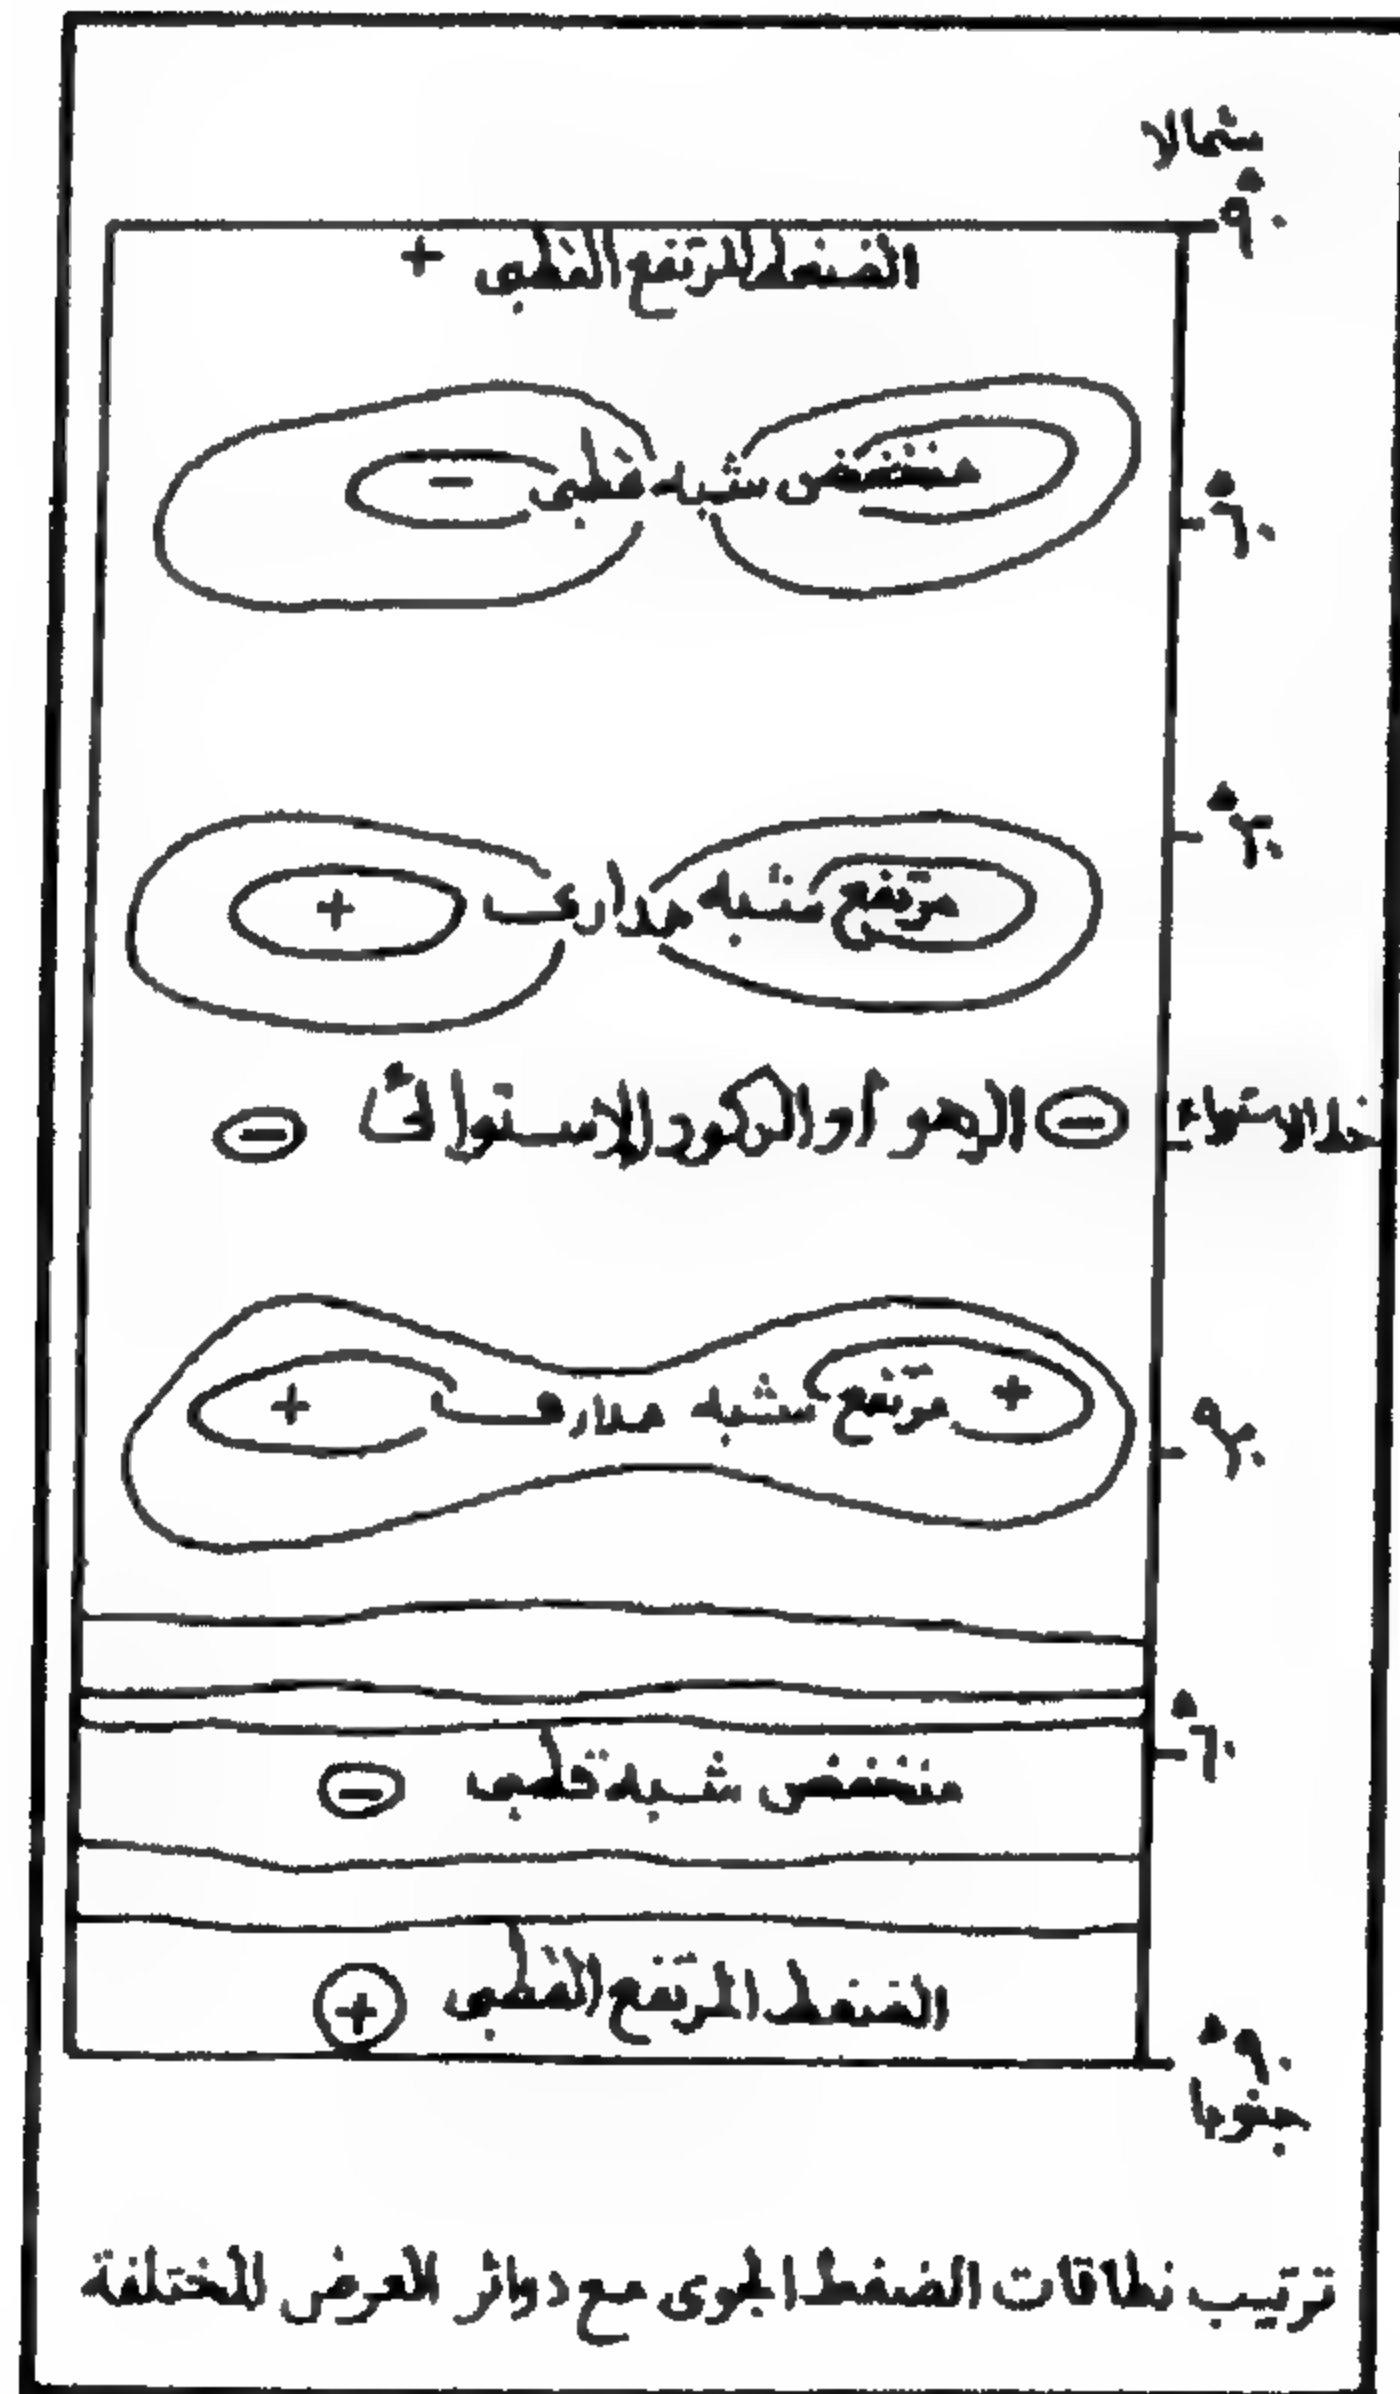 شمالا
°٩٠
الضغط المرتفع القطبى +
منخفض شبه قطبى -
°٦٠
°٣٠
مرتفع شبه مدارى +
خط الاستواء - الرهو أو الركود الاستوائى -
+ مرتفع شبه مدارى +
°٣٠
°٦٠
منخفض شبه قطبى -
الضغط المرتفع القطبى +
°٩٠
جنوبا
ترتيب نطاقات الضغط الجوى مع دوائر العرض المختلفة